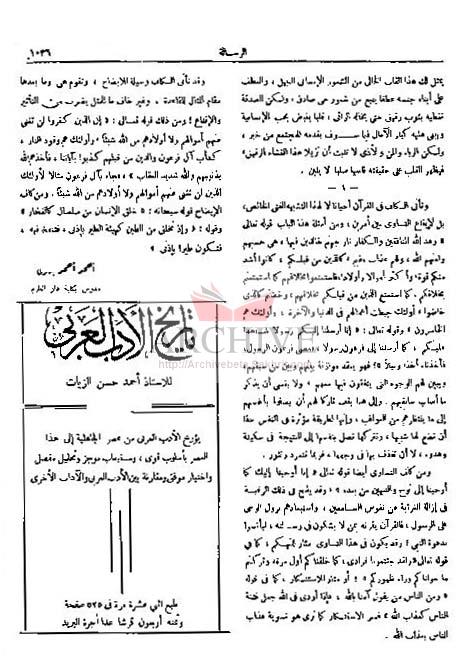 الرسالة
١٠٣٦
يمثل لك هذا القلب الخالى من الشعور الإنسانى النبيل، والعطف
على أبناء جنسه عطفاً ينبع من شعور صادق، ولكن الصدقة
تغطيه بثوب رقيق حتى يخاله الرائى، قلباً ينبض بحب الإنسانية
ويبنى عليه كبار الآمال فيما سوف يقدمه للمجتمع من خير،
ولكن الرياء والمن والأذى لا تلبث أن تزيل هذا الغشاء الرقيق
فيظهر القلب على حقيقته قاسياً صلباً لا يلين.
— ٤ —
وتأتى الكاف فى القرآن أحياناً لا لهذا التشبيه الفنى الخالص،
بل لإيقاع التساوى بين أمرين، ومن أمثلة هذا الباب قوله تعالى
« وعد الله المنافقين والمنافقات والكفار نار جهنم خالدين فيها هى حسبهم
ولعنهم الله، ولهم عذاب مقيم، كالذين من قبلكم، كانوا أشد
منكم قوة، وأكثر أموالا وأولاداً، فاستمتعوا بخلاقهم، فاستمتعتم
بخلاقكم، كما استمتع الذين من قبلكم بخلاقهم، وخضتم كالذى
خاضوا، أولئك حبطت أعمالهم فى الدنيا والآخرة، وأولئك هم
الخاسرون » وقوله تعالى: « إنا أرسلنا إليكم رسولا شاهداً
عليكم، كما أرسلنا إلى فرعون رسولا، فعصى فرعون الرسول،
فأخذناه أخذاً وبيلا »؛ فهو يعقد موازنة بينهم وبين من سبقهم
ويبين لهم الوجوه التى يتفقون فيها معهم، ولا ينسى أن يذكر
ما أصاب سابقيهم، وإلى هنا يقف تاركاً لهم أن يصلوا بأنفسهم
إلى ما ينتظرهم من العواقب، وإنها لطريقة مؤثرة فى النفس حقاً
أن تضع لها شبيها، وتتركها تصل بنفسها إلى النتيجة فى سكينة
وهدوء، لا أن تقذف بها فى وجهها، فربما تتمرد وتثور
ومن كاف التساوى أيضا قوله تعالى: « إنا أوحينا إليك كما
أوحينا إلى نوح والنبيين من بعده »؛ وقد يلمح فى ذلك الرغبة
فى إزالة الغرابة عن نفوس السامعين، واستبعادهم نزول الوحى
على الرسول، فالقرآن يقرنه بمن لا يشكون فى رسالته، ليأنسوا
بدعوة النبى؛ وقد يكون فى هذا التساوى مثار للتهكم، كما فى
قوله تعالى « ولقد جئتمونا فرادى، كما خلقناكم أول مرة، وتركتم
ما خولناكم وراء ظهوركم »؛ أو مثار للاستنكار، كما فى قوله
« ومن الناس من يقول آمنا بالله، فإذا أوذى فى الله جعل فتنة
الناس كعذاب الله »؛ فسر الاستنكار كما ترى هو تسوية عذاب
الناس بعذاب الله.
وقد تأتى الكاف وسيلة للإيضاح، وتقوم هى وما بعدها
مقام المثال للقاعدة، وغير خاف ما للمثل يضرب من التأثير
والإقناع؛ ومن ذلك قوله تعالى: « إن الذين كفروا لن تغنى
عنهم أموالهم ولا أولادهم من الله شيئاً، وأولئك هم وقود النار،
كدأب آل فرعون والذين من قبلهم كذبوا بآياتنا، فأخذهم الله
بذنوبهم والله شديد العقاب »، فجاء بآل فرعون مثالا لأولئك
الذين لن تغنى عنهم أموالهم ولا أولادهم من الله شيئاً. ومن كاف
الإيضاح قوله سبحانه: « خلق الإنسان من صلصال كالفخار »
وقوله: « وإذ تخلق من الطين كهيئة الطير بإذنى، فتنفخ فيه،
فتكون طيراً بإذنى »
أحمد أحمد بدوى
مدرس بكلية دار العلوم
تاريخ الأدب العربى
للأستاذ أحمد حسن الزيات
يؤرخ الأدب العربى من عصر الجاهلية إلى هذا
العصر بأسلوب قوى، واستيعاب موجز وتحليل مفصل
واختيار موفق ومقارنة بين الأدب العربى والآداب الأخرى
طبع اثنى عشرة مرة فى ٥٢٥ صفحة
وثمنه أربعون قرشا عدا أجرة البريد
ARCHIVE